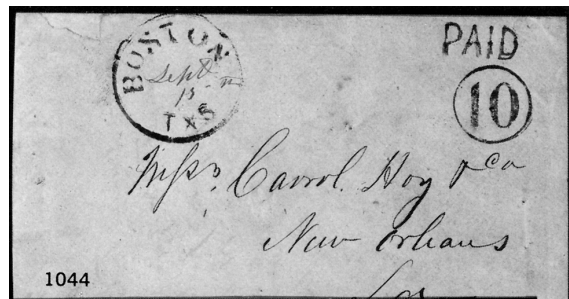 BOSTON
Sept
15
TXS
PAID
10
Messrs. Carrol. Hoy & Co
New Orleans
La
1044